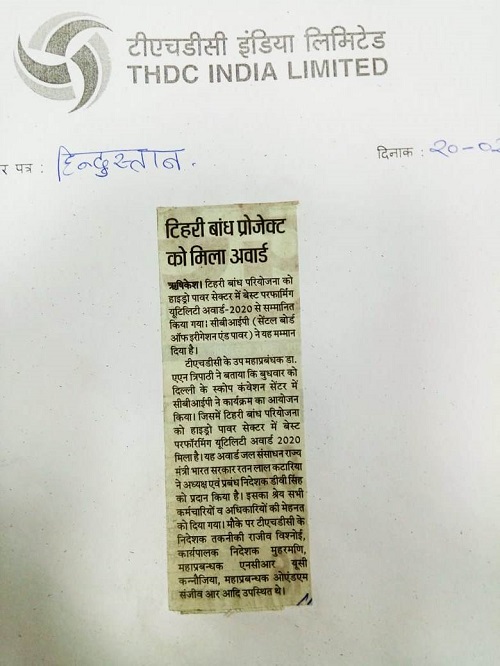 टीएचडीसी इंडिया लिमिटेड
THDC INDIA LIMITED
र पत्र : हिन्दुस्तान.
दिनाक : २०-०२
टिहरी बांध प्रोजेक्ट
को मिला अवार्ड
ऋषिकेश। टिहरी बांध परियोजना को
हाइड्रो पावर सेक्टर में बेस्ट परफार्मिंग
यूटिलिटी अवार्ड-2020 से सम्मानित
किया गया। सीबीआईपी (सेंटल बोर्ड
ऑफ इरीगेशन एंड पावर) ने यह मम्मान
दिया है।
टीएचडीसी के उप महाप्रबंधक डा.
एएन त्रिपाठी ने बताया कि बुधवार को
दिल्ली के स्कोप कंवेशन सेंटर में
सीबीआईपी ने कार्यक्रम का आयोजन
किया। जिसमें टिहरी बांध परियोजना
को हाइड्रो पावर सेक्टर में बेस्ट
परफॉरमिंग यूटिलिटी अवार्ड 2020
मिला है। यह अवार्ड जल संसाधन राज्य
मंत्री भारत सरकार रतन लाल कटारिया
ने अध्यक्ष एवं प्रबंध निदेशक डीवी सिंह
को प्रदान किया है। इसका श्रेय सभी
कर्मचारियों व अधिकारियों की मेहनत
को दिया गया। मौके पर टीएचडीसी के
निदेशक तकनीकी राजीव विश्नोई,
कार्यपालक निदेशक मुहरमणि,
महाप्रबन्धक एनसीआर यूसी
कन्नौजिया, महाप्रबन्धक ओएंडएम
संजीव आर आदि उपस्थित थे।